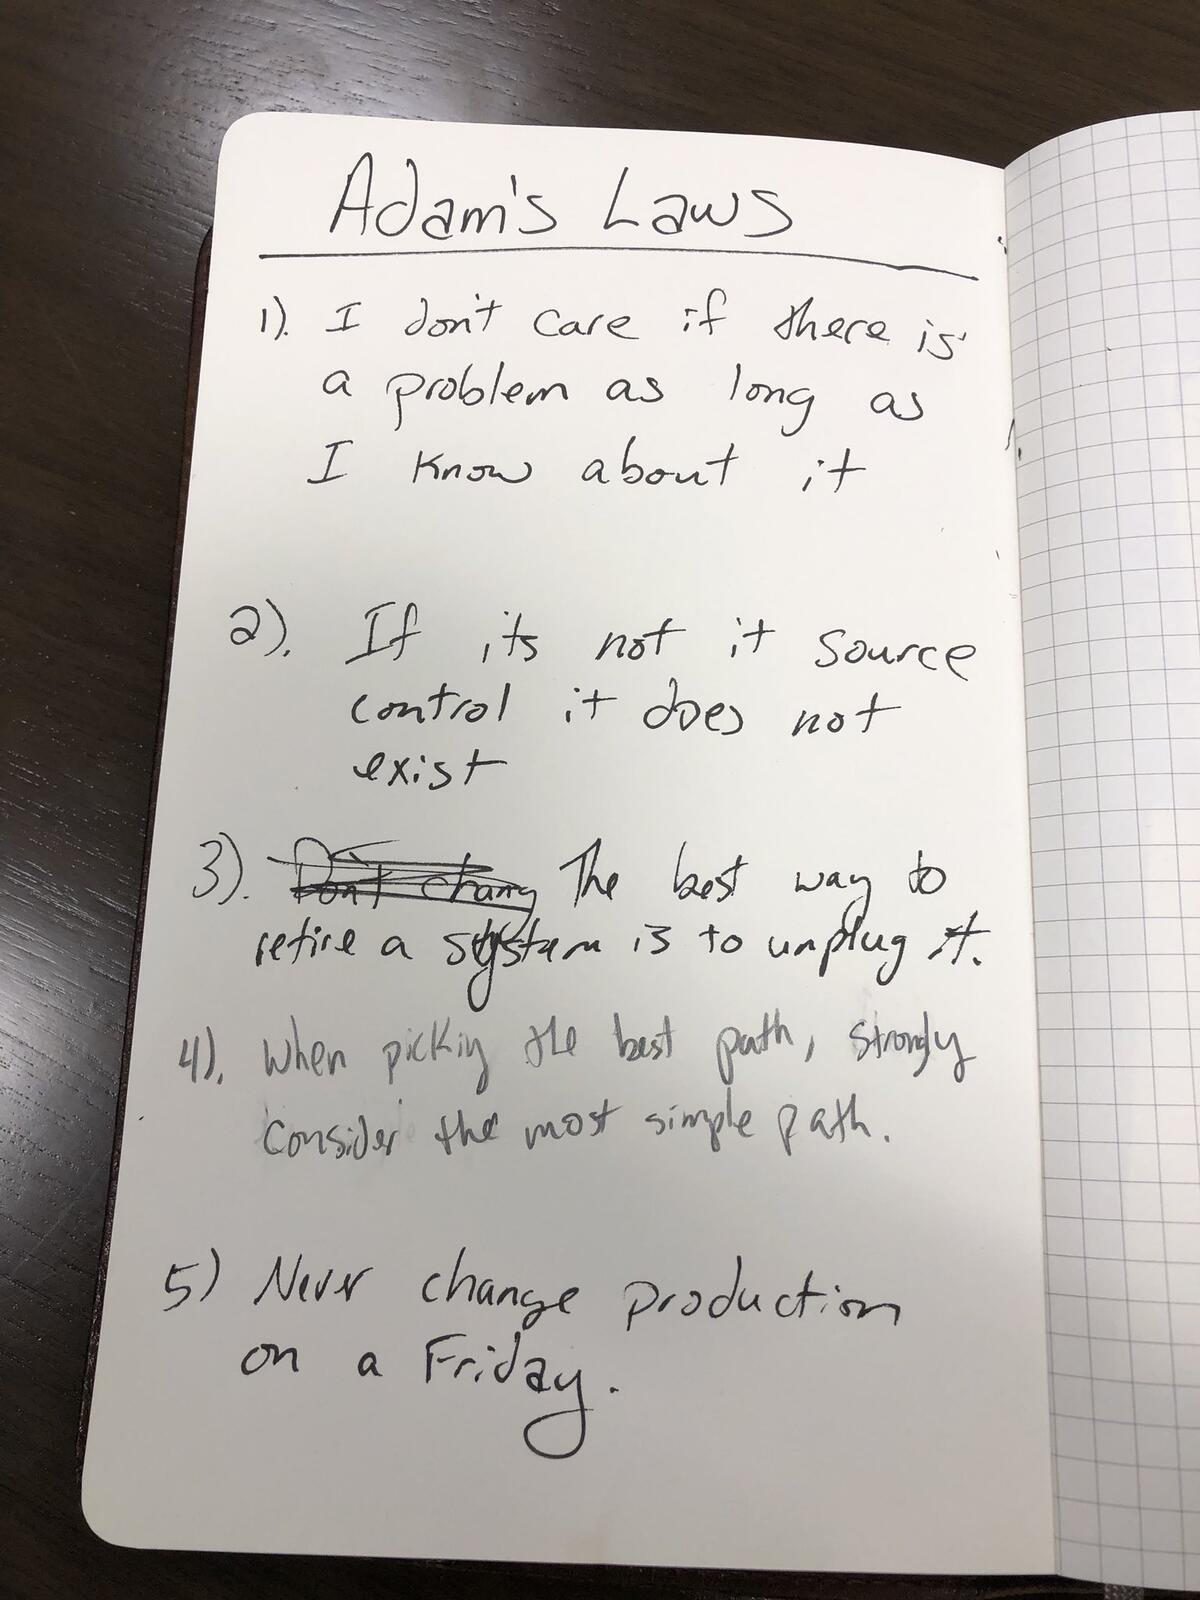 Adam's Laws
1). I don't care if there is
a problem as long as
I know about it
2). If its not it source
control it does not
exist
3). Don't chang The best way to
retire a system is to unplug it.
4). When picking the best path, strongly
consider the most simple path.
5) Never change production
on a Friday.